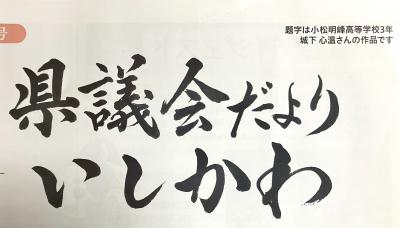 号
題字は小松明峰高等学校3年
城下 心温さんの作品です
県議会だより
いしかわ